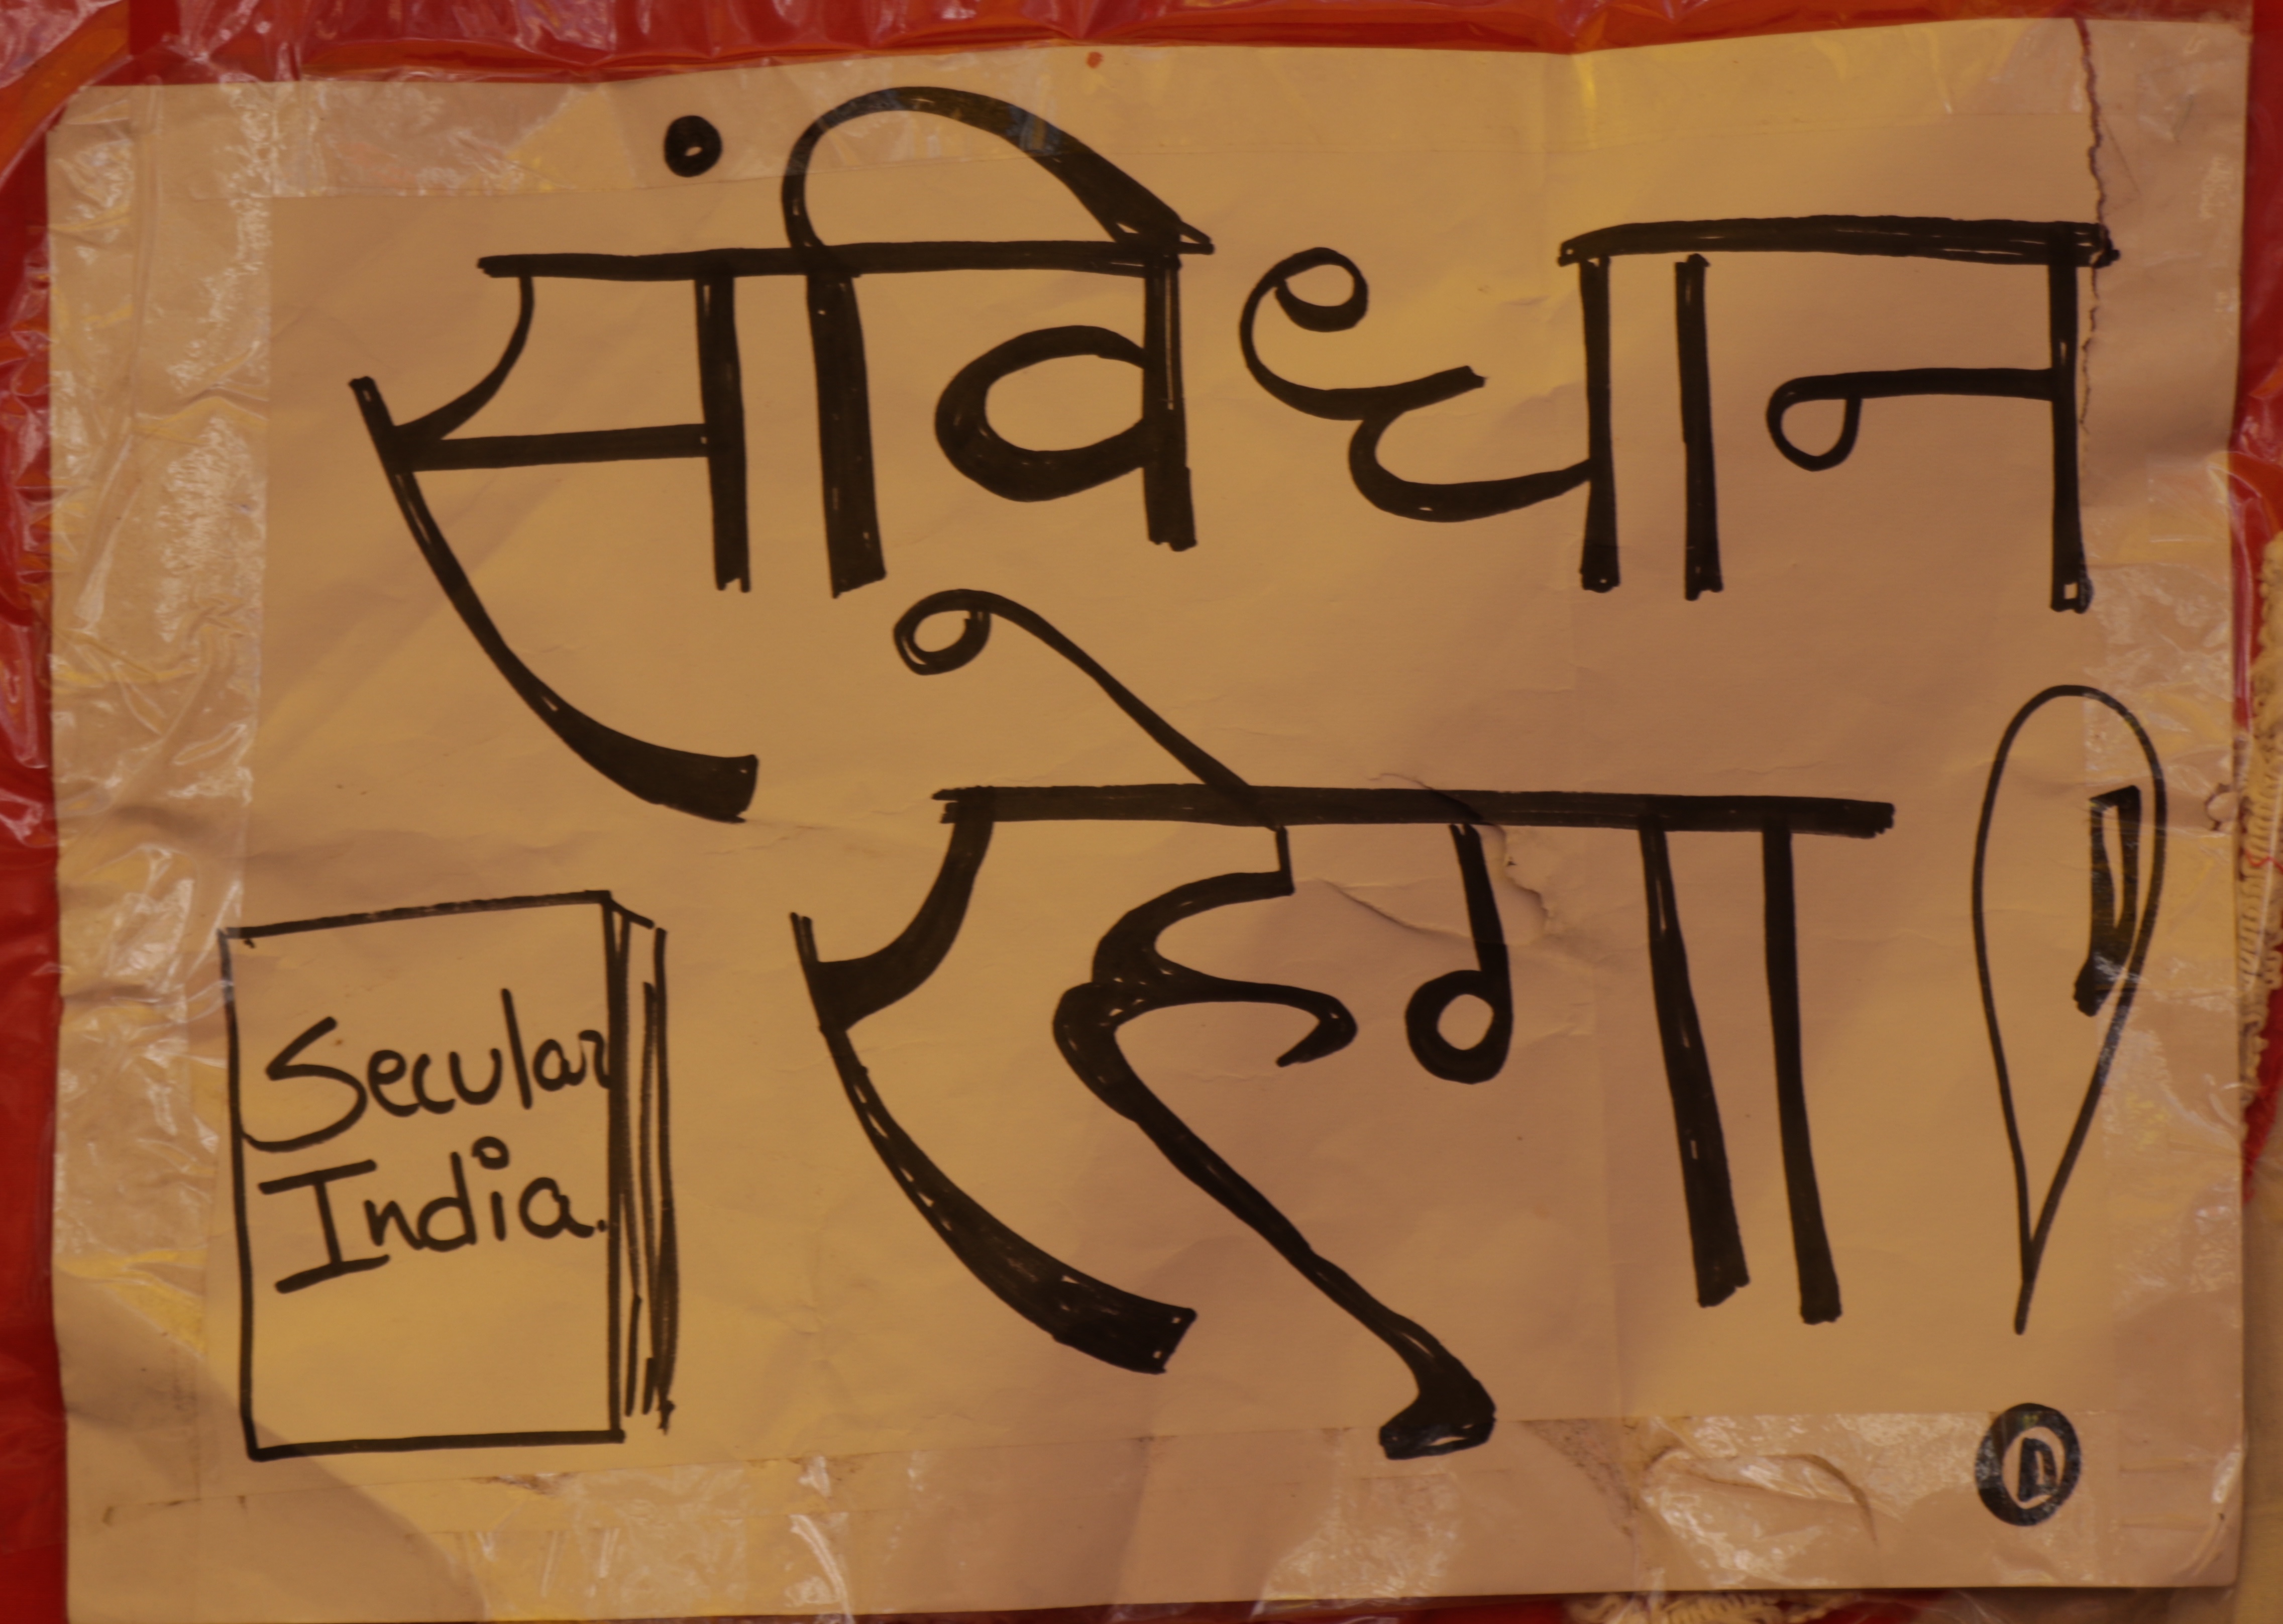 संविधान
रहेगा!
Secular
India.